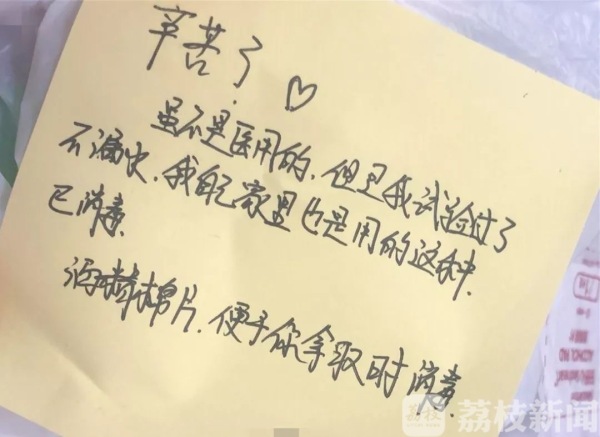 辛苦了♡
虽不是医用的,但是我试验过了
不漏水,我自己家里也是用的这种.
已消毒.
酒精棉片,便于你拿取时消毒.
荔枝新闻